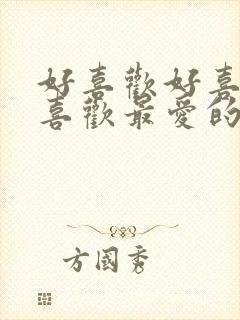 好喜歡好喜
喜歡最愛的
方國秀